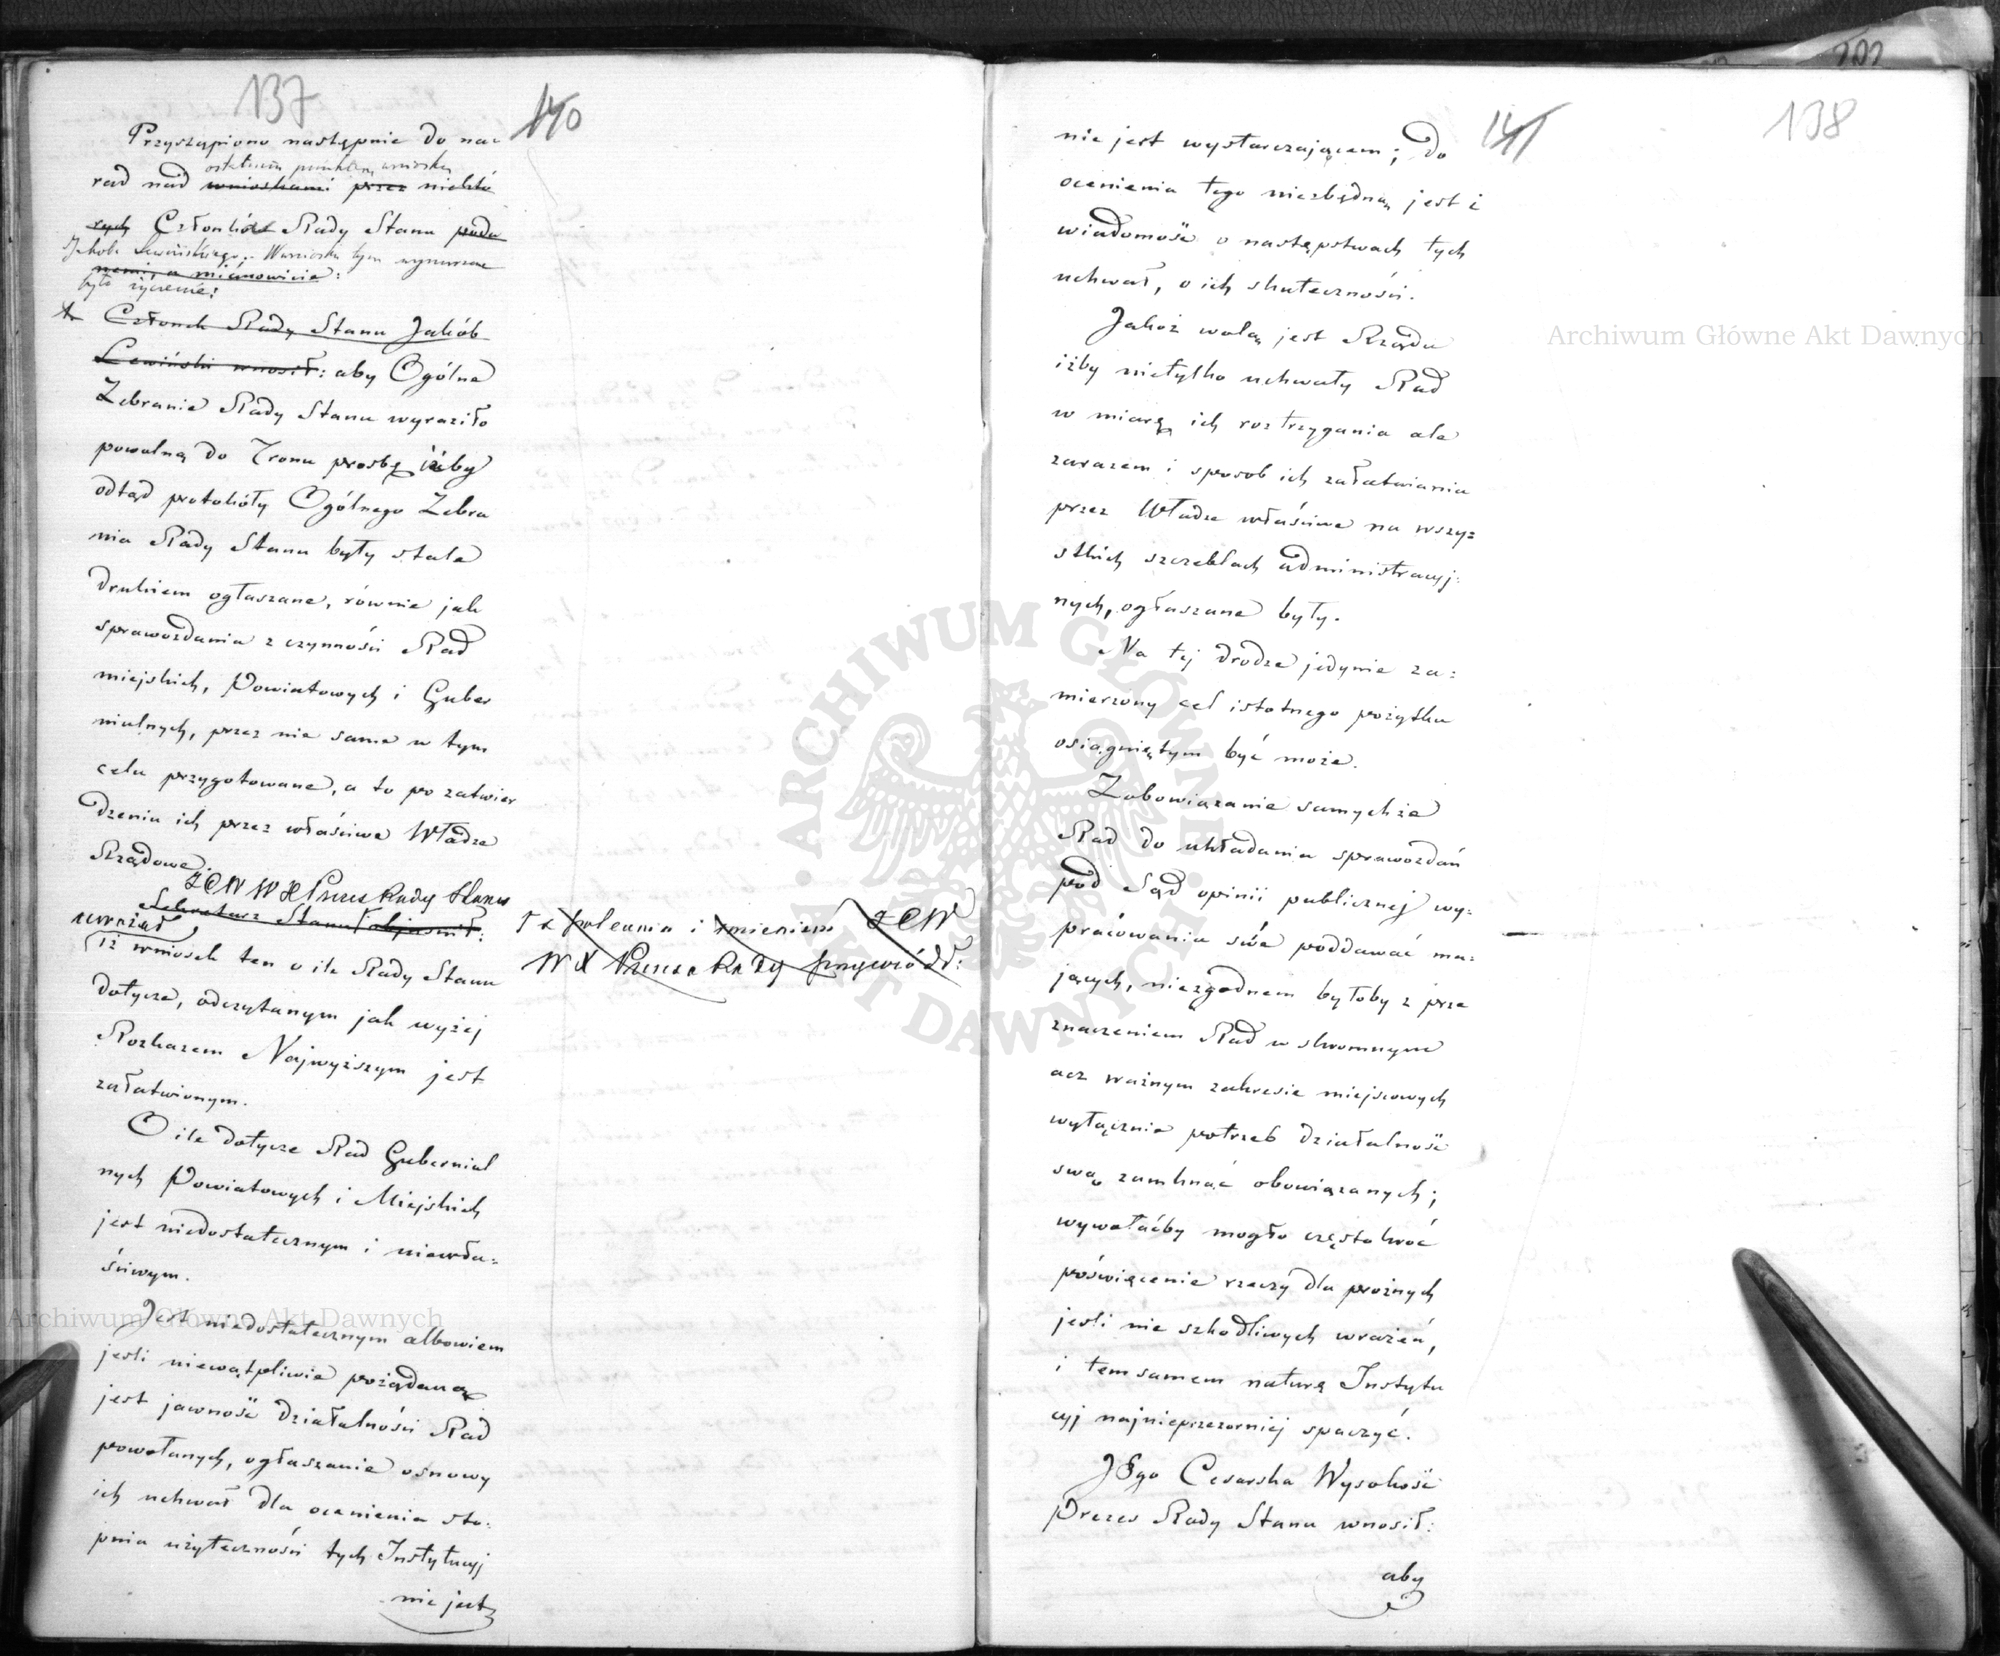 137
140
Przystąpiono następnie do na-
ostatnim punktem wniosku
rad nad wnioskami przez niektó
rych Członków Rady Stanu poda
Jakób Lewińskiego. Wnioskiem tym wynurzone
nemi, a mianowicie:
było życzenie:
Członek Rady Stanu Jakób
Lewiński wnosił: aby Ogólne
Zebranie Rady Stanu wyraziło
powolną do Tronu prośbę iżby
odtąd protokóły Ogólnego Zebra
nia Rady Stanu były stale
drukiem ogłaszane, równie jak
sprawozdania z czynności Rad
miejskich, Powiatowych i Guber
nialnych, przez nie same w tym
celu przygotowane, a to po zatwier
dzeniu ich przez właściwe Władze
Rządowe.
JCW WX Prezes Rady Stanu
Sekretarz Stanu objaśnił:
uważał
iż wniosek ten o ile Rady Stanu
dotycze, odczytanym jak wyżej
Rozkazem Najwyższym jest
załatwionym.
O ile dotycze Rad Gubernial
nych Powiatowych i Miejskich
jest niedostatecznym i niewła-
ściwym.
Jest niedostatecznym albowiem
jeśli niewątpliwie pożądaną
jest jawność działalności Rad
powołanych, ogłaszanie osnowy
ich uchwał dla ocenienia sto-
pnia użyteczności tych Instytucyj
nie jest
z polecenia i imieniem JCW
WX Prezesa Rady przywiódł:
141
138
nie jest wystarczającem; do
ocenienia tego niezbędną jest i
wiadomość o następstwach tych
uchwał, o ich skuteczności.
Jakoż wolą jest Rządu
iżby nietylko uchwały Rad
w miarę ich roztrzygania ale
zarazem i sposób ich załatwiania
przez Władze właściwe na wszy-
stkich szczeblach administracyj-
nych, ogłaszane były.
Na tej drodze jedynie za-
mierzony cel istotnego pożytku
osiągniętym być może.
Zobowiązanie samychże
Rad do układania sprawozdań
pod Sąd opinii publicznej wy-
pracowania swe poddawać ma-
jących, niezgodnem byłoby z prze
znaczeniem Rad w skromnym
acz ważnym zakresie miejscowych
wyłącznie potrzeb działalność
swą zamknąć obowiązanych;
wywołaćby mogło częstokroć
poświęcenie rzeczy dla próżnych
jeśli nie szkodliwych wrażeń,
i temsamem naturę Instytu
cyj najnieprzezorniej spaczyć.
Jego Cesarska Wysokość
Prezes Rady Stanu wnosił:
aby
Archiwum Główne Akt Dawnych
Archiwum Główne Akt Dawnych
ARCHIWUM GŁÓWNE AKT DAWNYCH